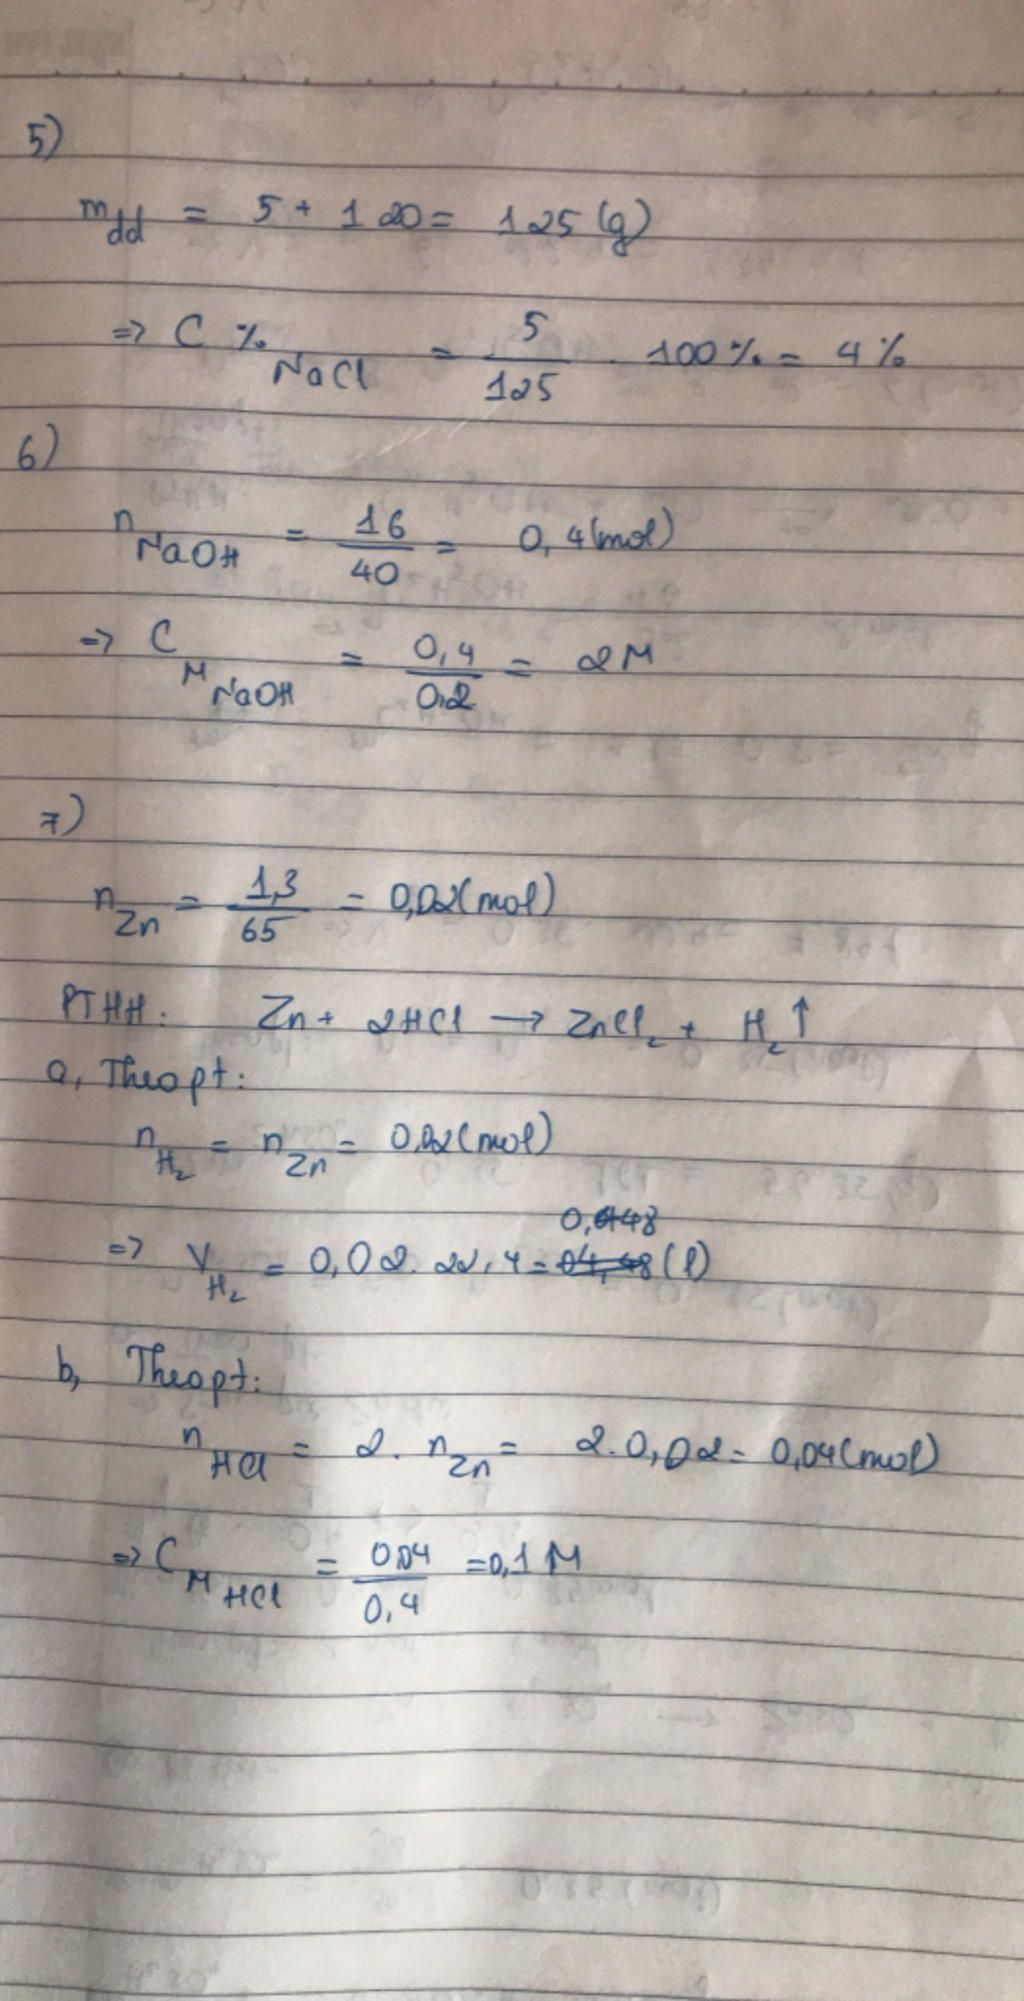 5)
m dd = 5 + 120 = 125 (g)
=> C % NaCl = 5/125 . 100 % = 4 %
6)
n NaOH = 16/40 = 0,4 (mol)
=> C M NaOH = 0,4/0,2 = 2 M
7)
n Zn = 1,3/65 = 0,02 (mol)
PTHH: Zn + 2HCl → ZnCl2 + H2 ↑
a, Theo pt:
n H2 = n Zn = 0,02 (mol)
=> V H2 = 0,02. 22,4 = 0,448 (l)
b, Theo pt:
n HCl = 2. n Zn = 2.0,02 = 0,04 (mol)
=> C M HCl = 0,04/0,4 = 0,1 M